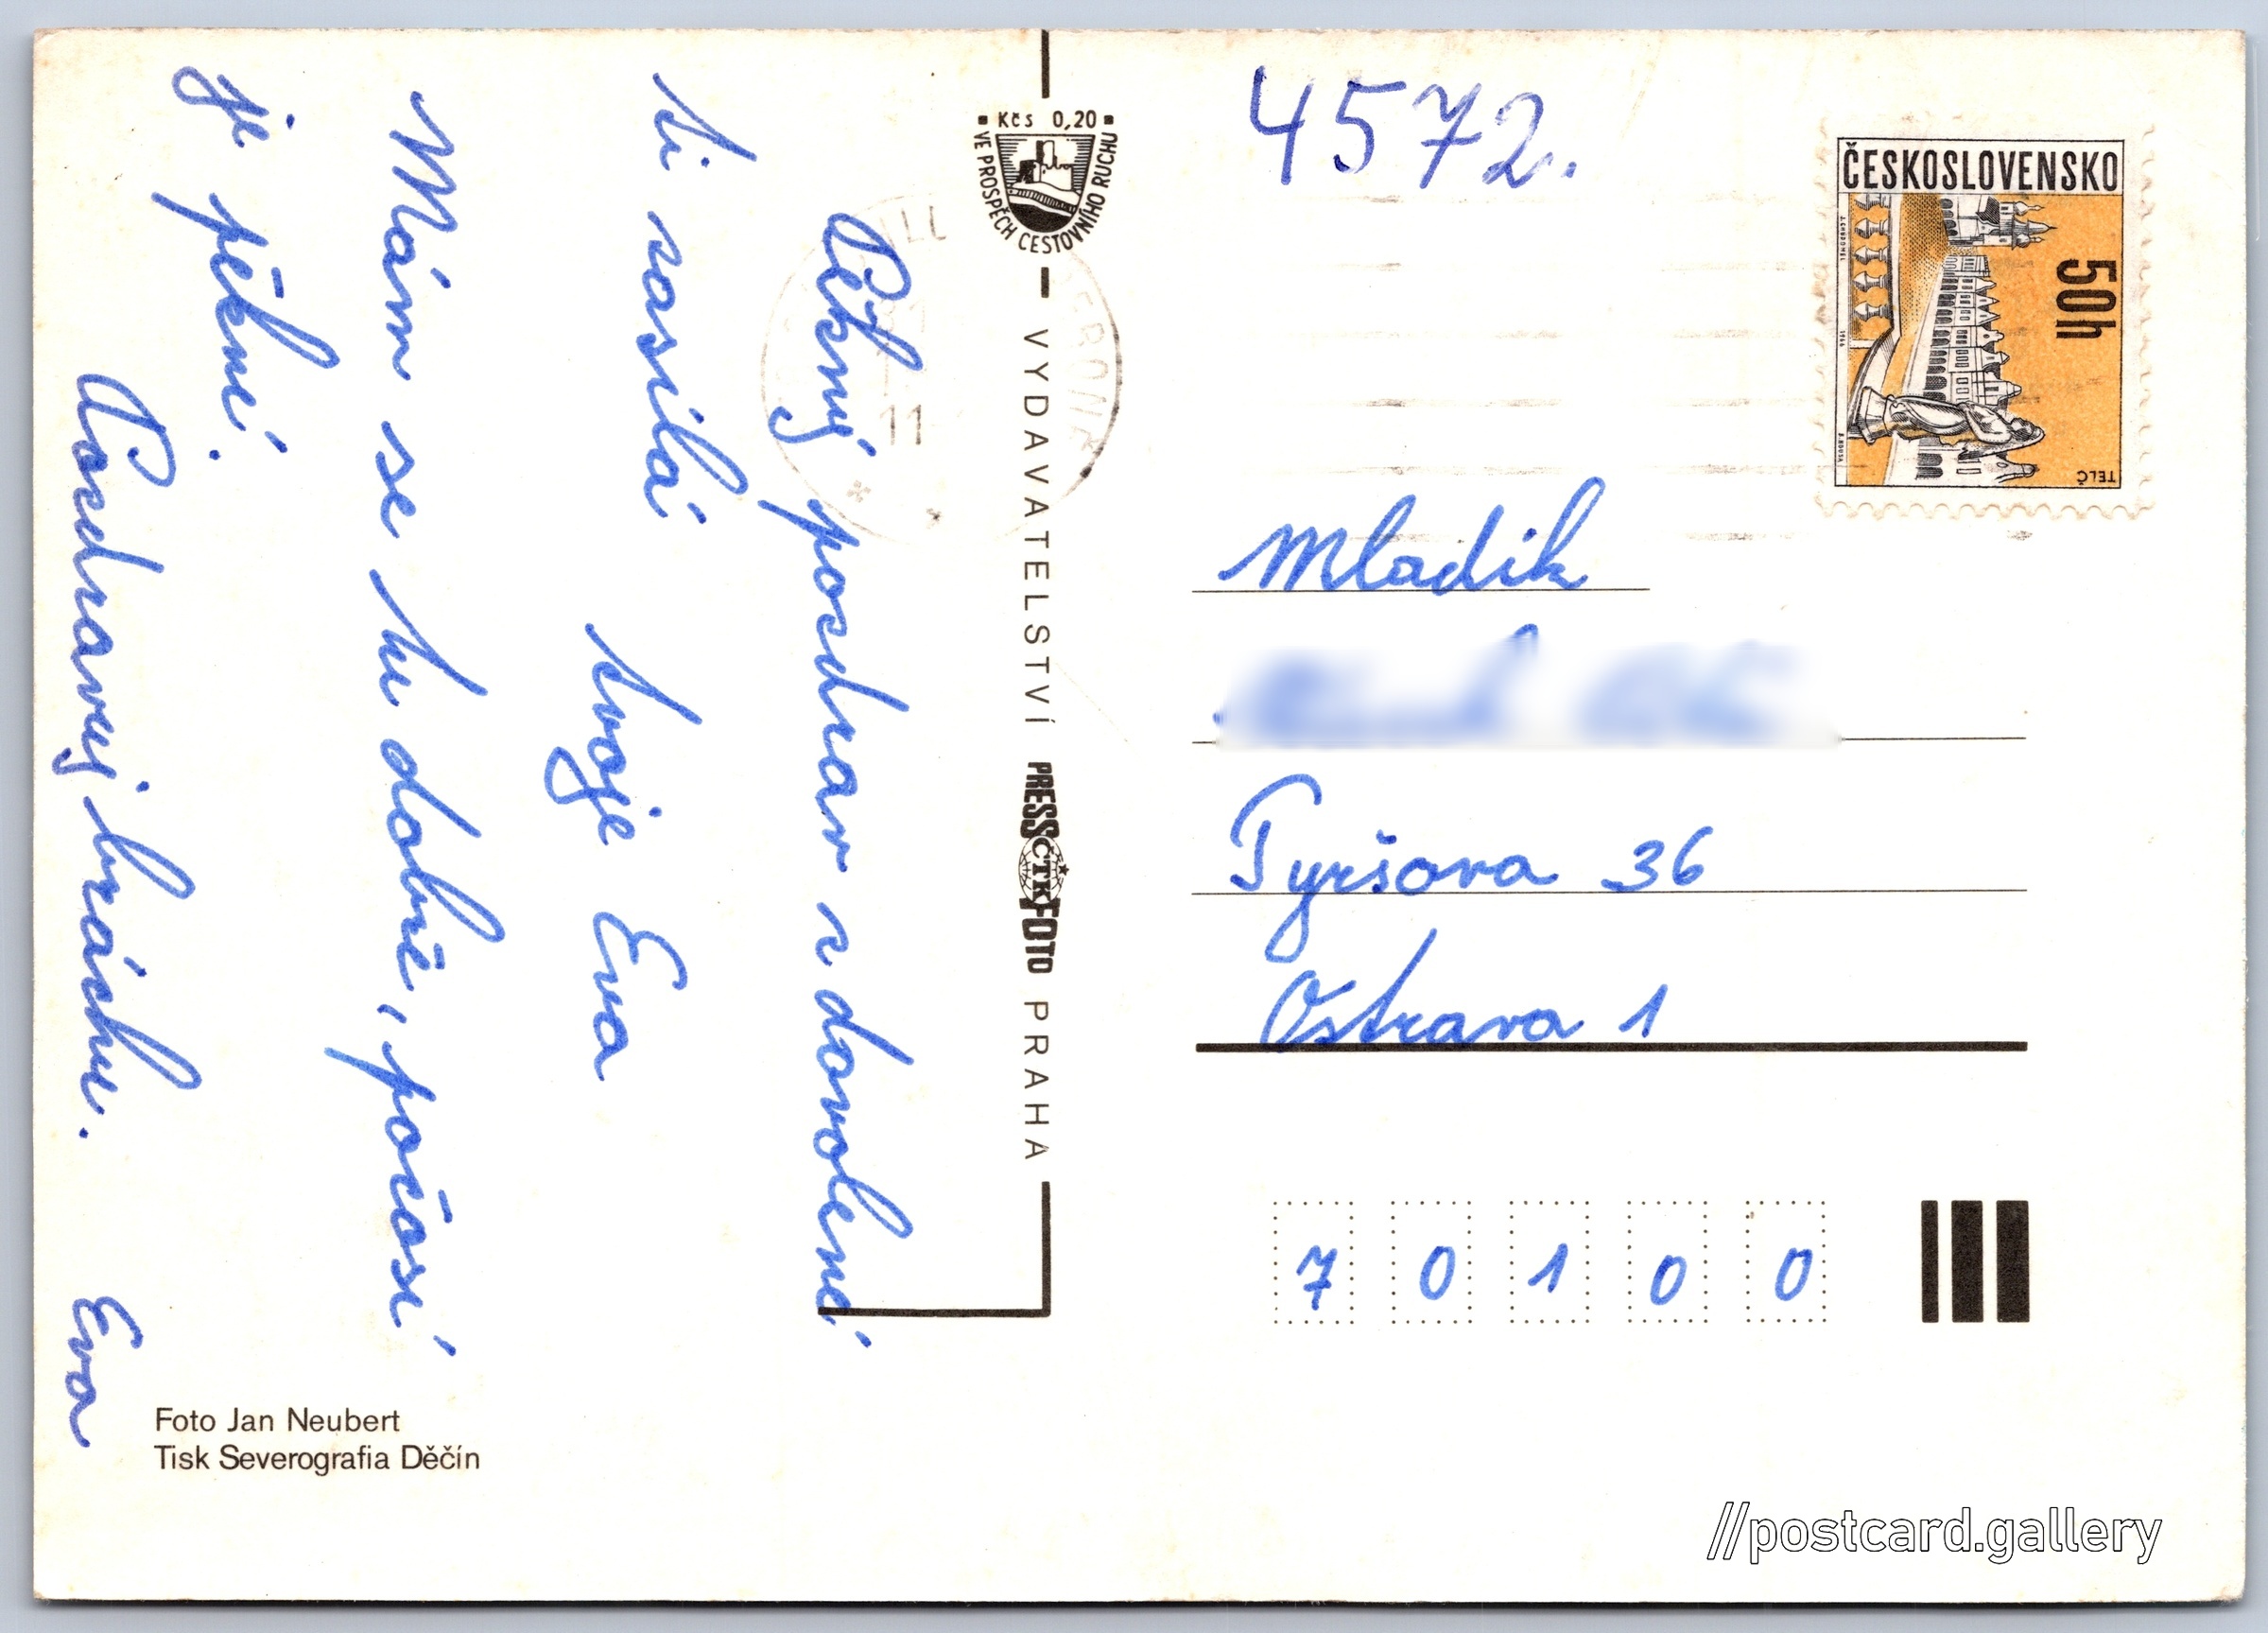 Pěkný pozdrav z dovolené
ti zasílá
tvoje Eva
Mám se tu dobře, počasí
je pěkné.
Pozdravuj bráchu. Eva
Foto Jan Neubert
Tisk Severografia Děčín
Kčs 0,20
VE PROSPĚCH CESTOVNÍHO RUCHU
VYDAVATELSTVÍ PRESSČTKFOTO PRAHA
11
4572.
ČESKOSLOVENSKO
50h
TELČ
Mladík
Tyršova 36
Ostrava 1
7 0 1 0 0
//postcard.gallery